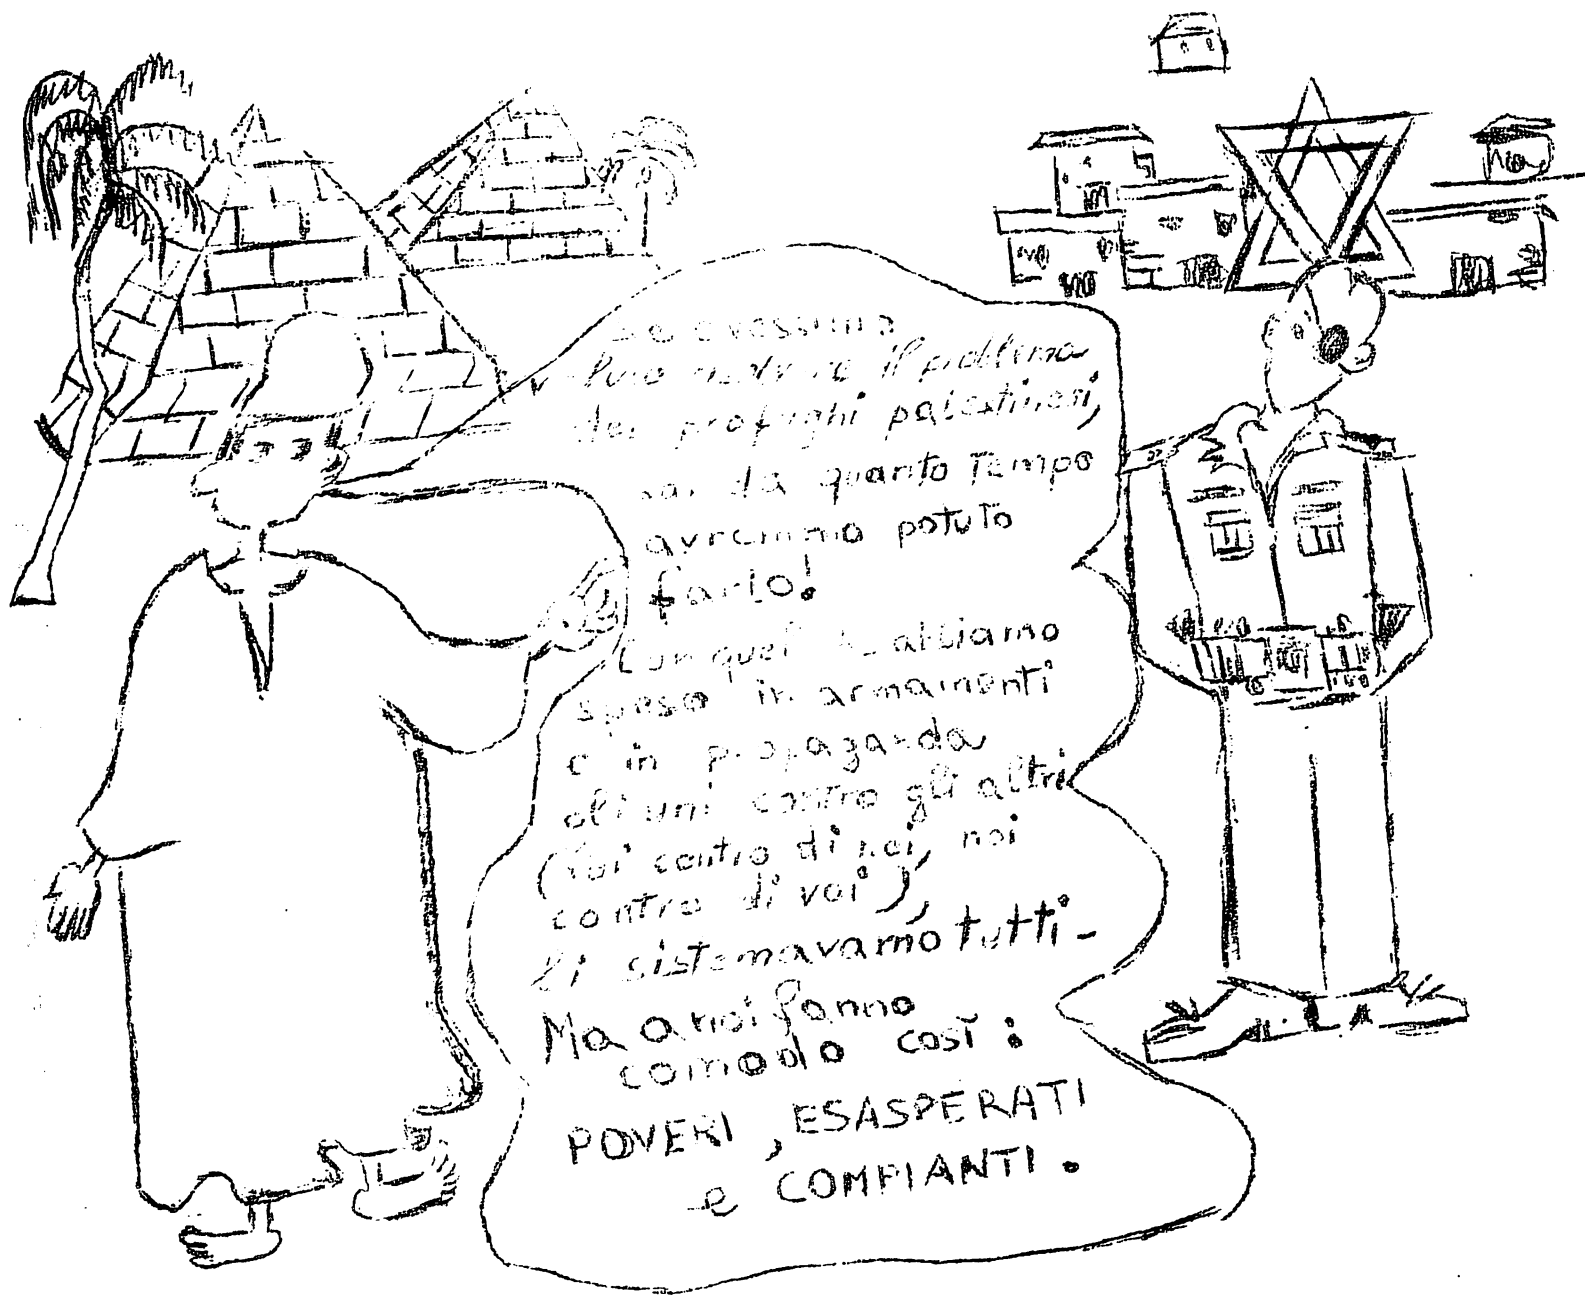 Se avessimo
voluto risolvere il problema
dei profughi palestinesi,
sai da quanto Tempo
avremmo potuto
farlo!
Con quel che abbiamo
speso in armamenti
e in propaganda
gli uni contro gli altri
(Voi contro di noi, noi
contro di voi),
li sistemavamo tutti -
Ma a noi fanno
comodo così:
POVERI, ESASPERATI
e COMPIANTI.